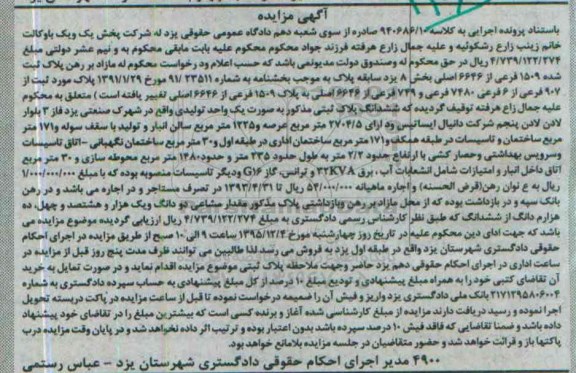 آگهی مزایده
باستناد پرونده اجرایی به کلاسه ۹۴۰۶۸۶/۱۰ صادره از سوی شعبه دهم دادگاه عمومی حقوقی یزد له شرکت پخش یک ویک باوکالت
خانم زینب زارع رشکوئیه و علیه جمال زارع هرفته فرزند جواد محکوم محکوم علیه بابت مابقی محکوم به و نیم عشر دولتی مبلغ
۴/۷۳۹/۱۲۲/۲۷۴ ریال در حق محکوم له وصندوق دولت مدیونمی باشد که حسب اعلام ودرخواست محکوم له مازاد بر رهن پلاک ثبت
شده ۱۵۰۹ فرعی از ۶۶۴۶ اصلی بخش ۸ یزد سابقه پلاک به موجب بخشنامه به شماره ۹۱/۲۳۵۱۱ مورخ ۱۳۹۱/۷/۲۹ پلاک مورد ثبت از
۹۰۷ فرعی از ۶ فرعی ۷۴۸۰ فرعی و ۷۴۹ فرعی از ۶۶۴۶ اصلی به پلاک ۱۵۰۹ فرعی از ۶۶۴۶ اصلی تغییر یافته است) متعلق به محکوم
علیه جمال زارع هرفته توقیف گردیده که ششدانگ پلاک ثبتی مذکور به صورت یک واحد تولیدی واقع در شهرک صنعتی یزد فاز ۳ بلوار
لادن لادن پنجم شرکت دانیال ایساتیس ود ارای ۲۷۰۴/۵ متر مربع عرصه و۱۲۲۵ متر مربع سالن انبار و تولید با سقف سوله و۱۷۱ متر
مربع ساختمان و تاسیسات در طبقه همکف و۱۷۱ متر مربع ساختمان اداری در طبقه اول و۳۰ متر مربع ساختمان نگهبانی -اتاق تاسیسات
وسرویس بهداشتی وحصار کشی با ارتفاع حدود ۲/۲ متر به طول حدود ۲۳۵ متر و حدود۱۴۸۰ متر مربع محوطه سازی و ۳۰ متر مربع
اتاق داخل انبار و امتیازات شامل انشعابات آب، برق ۳۲KVA و توانس، گاز G۱۶ ودیگر تاسیسات منصوبه بوده که با مبلغ ۱/۰۰۰/۰۰۰/۰۰۰
ریال به ع نوان رهن(قرض الحسنه) و اجاره ماهیانه ۵۴/۰۰۰/۰۰۰ ریال تا ۱۳۹۳/۴/۳۱ در تصرف مستاجر و در اجاره می باشد و در رهن
بانک سپه و در بازداشت بوده که از محل مازاد بر رهن وبازداشتی پلاک مذکور مقدار مشاعی دو دانگ ویک هزار و هشتصد و چهل، ده
هزارم دانگ از ششدانگ که طبق نظر کارشناس رسمی دادگستری به مبلغ ۴/۷۳۹/۱۲۲/۲۷۴ ریال ارزیابی گردیده موضوع مزایده می
باشد که جهت ادای دین محکوم علیه در تاریخ روز چهارشنبه مورخ ۱۳۹۵/۱۲/۴ ساعت ۹ الی ۱۰ صبح از طریق مزایده در اجرای احکام
حقوقی دادگستری شهرستان یزد واقع در طبقه اول یزد به فروش می رسد لذا طالبین می توانند ظرف مدت پنج روز قبل از مزایده در
ساعت اداری در اجرای احکام حقوقی دهم یزد حاضر وجهت ملاحظه پلاک ثبتی موضوع مزایده اقدام نماید و در صورت تمایل به خرید
آن تقاضای کتبی خود را به همراه مبلغ پیشنهادی و تودیع مبلغ ۱۰ درصد از کل مبلغ پیشنهادی به حساب سپرده دادگستری به شماره
۲۱۷۱۲۹۵۸۰۶۰۰۴ بانک ملی دادگستری یزد واریز و فیش آن را ضمیمه درخواست نموده تا قبل از ساعت مزایده در پاکت دربسته تحویل
اجرا نموده و رسید دریافت دارند مزایده از مبلغ کارشناسی شده آغاز و برنده کسی است که بیشترین مبلغ را در تقاضای خود پیشنهاد
داده باشد و ضمنا تقاضایی که فاقد فیش ۱۰ درصد سپرده باشد بدون اعتبار بوده و ترتیب اثر داده نخواهد شد و در پایان وقت مزایده درب
پاکتها باز و قرائت خواهد شد و حضور متقاضیان در جلسه مزایده بلامانع خواهد بود.
۴۹۰۰ مدیر اجرای احکام حقوقی دادگستری شهرستان یزد - عباس رستمی